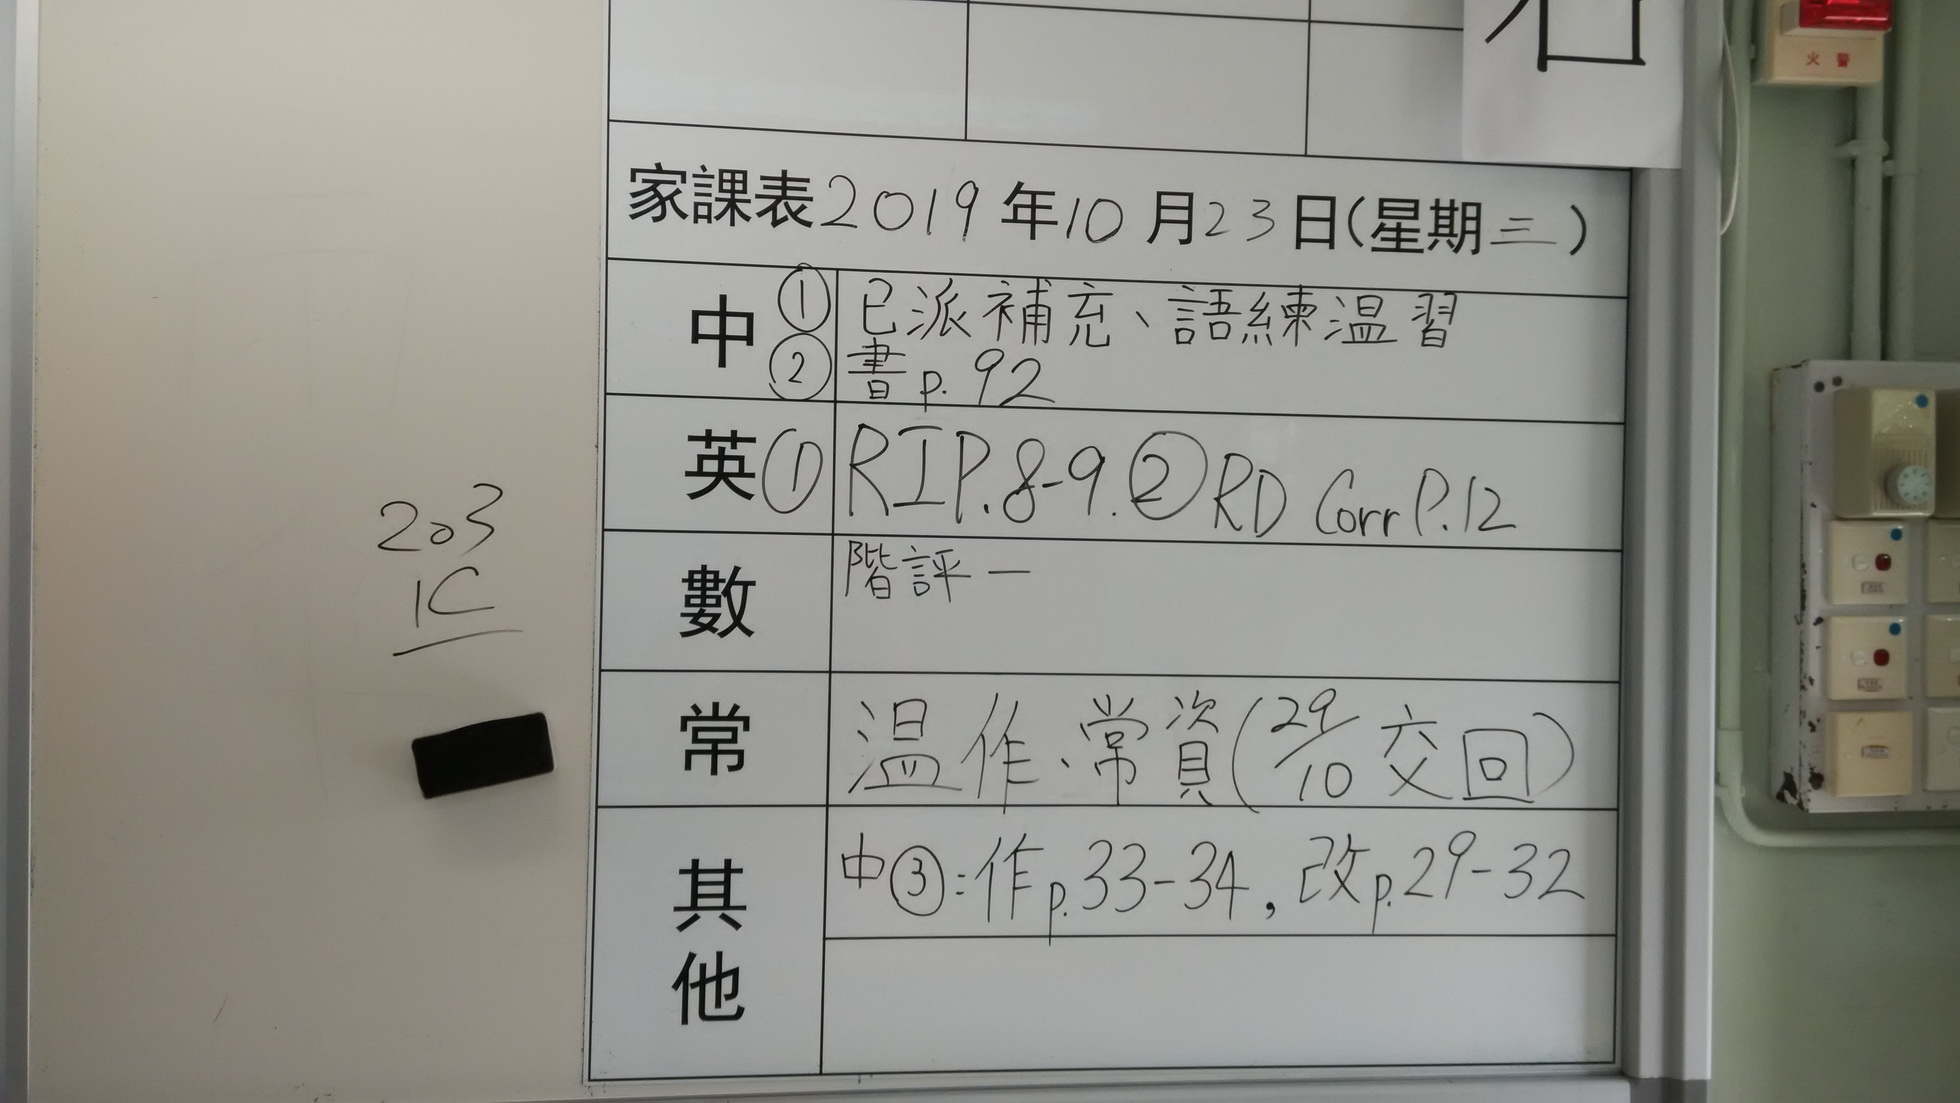 火警
家課表2019年10月23日(星期三)
中 ① 已派補充、語練溫習
② 書p.92
英 ① RI P.8-9. ② RD Corr P.12
數 階評一
常 溫作、常資(29/10交回)
其他 中③:作p.33-34,改p.29-32
203
1C